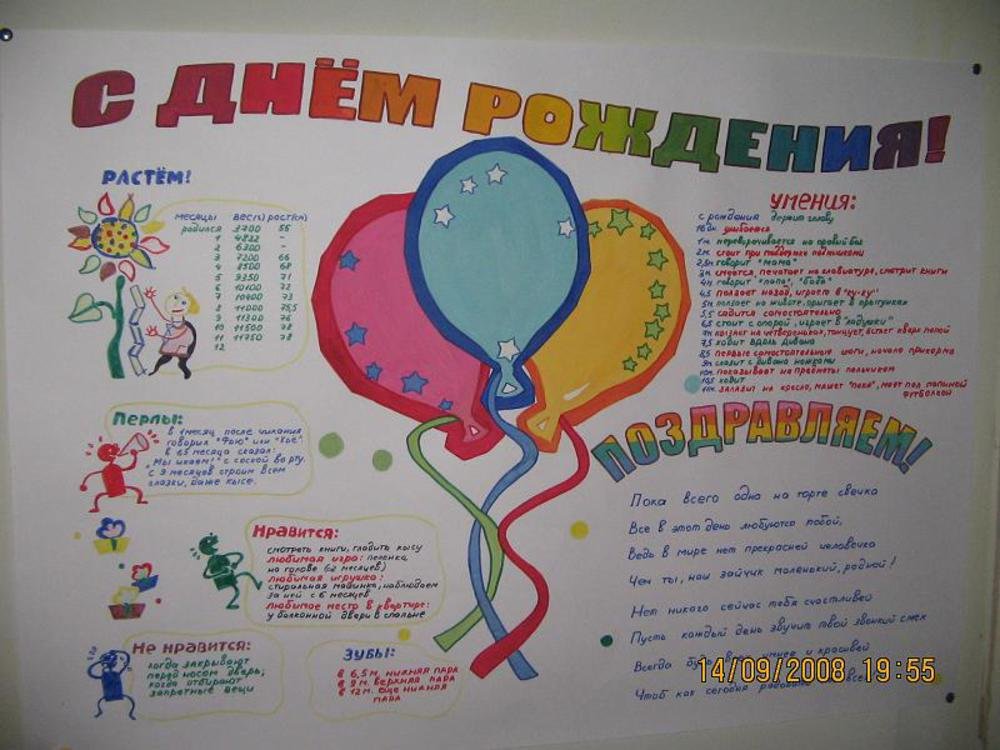 С ДНЁМ РОЖДЕНИЯ!
РАСТЁМ!
месяцы вес(г) рост(см)
родился 3700 55
1 4822 -
2 6300 -
3 7200 66
4 8500 68
5 9250 71
6 10100 72
7 10400 73
8 11000 75,5
9 11300 76
10 11500 78
11 11750 78
12
Перлы:
в 1 месяц после чихания
говорил "Фою" или "Хье".
в 6,5 месяца сказал:
"Мы икаем!" с соской во рту.
С 9 месяцев строит всем
глазки, даже кысе.
Нравится:
смотреть книги, гладить кысу
любимая игра: пеленка
на голове (с 2 месяцев)
любимая игрушка:
стиральная машинка, наблюдаем
за ней с 6 месяцев
любимое место в квартире:
у балконной двери в спальне
Не нравится:
когда закрывают
перед носом дверь;
когда отбирают
запретные вещи
ЗУБЫ:
в 6,5 м. нижняя пара
в 9 м. верхняя пара
в 12 м. еще нижняя
пара
УМЕНИЯ:
с рождения держит голову
улыбается
1м переворачивается на правый бок
2м стоит при поддержке подмышками
2,5м говорит "мама"
3м смеется, печатает на клавиатуре, смотрит книги
4м говорит "папа", "баба"
4,5 ползает назад, играет в "ку-ку"
5м ползает на животе, прыгает в прыгунках
5,5 садится самостоятельно
6,5 стоит с опорой, играет в "ладушки"
7м ползает на четвереньках, танцует, встает кверх попой
7,5 ходит вдоль дивана
8,5 первые самостоятельные шаги, начало прикорма
9м слазит с дивана ножками
10м показывает на предметы пальчиком
10,5 ходит
11м залазит на кресло, машет "пока", моет пол папиной
футболкой
ПОЗДРАВЛЯЕМ!
Пока всего одна на торте свечка
Все в этот день любуются тобой,
Ведь в мире нет прекрасней человечка
Чем ты, наш зайчик маленький, родной!
Нет никого сейчас тебя счастливей
Пусть каждый день звучит твой звонкий смех
Всегда будь умнее и красивей
Чтоб как сегодня
14/09/2008 19:55